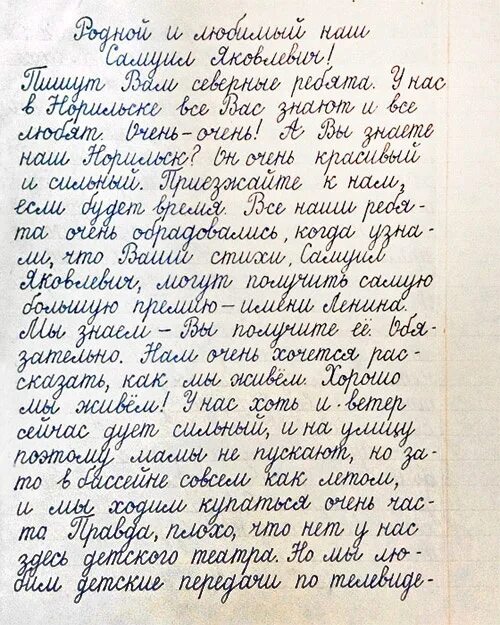 Родной и любимый наш
Самуил Яковлевич!
Пишут Вам северные ребята. У нас
в Норильске все Вас знают и все
любят. Очень-очень! А Вы знаете
наш Норильск? Он очень красивый
и сильный. Приезжайте к нам,
если будет время. Все наши ребя-
та очень обрадовались, когда узна-
ли, что Ваши стихи, Самуил
Яковлевич, могут получить самую
большую премию – имени Ленина.
Мы знаем – Вы получите её. Обя-
зательно. Нам очень хочется рас-
сказать, как мы живём. Хорошо
мы живём! У нас хоть и ветер
сейчас дует сильный, и на улицу
поэтому мамы не пускают, но за-
то в бассейне совсем как летом,
и мы ходим купаться очень час-
то Правда, плохо, что нет у нас
здесь детского театра. Но мы лю-
бим детские передачи по телевиде-